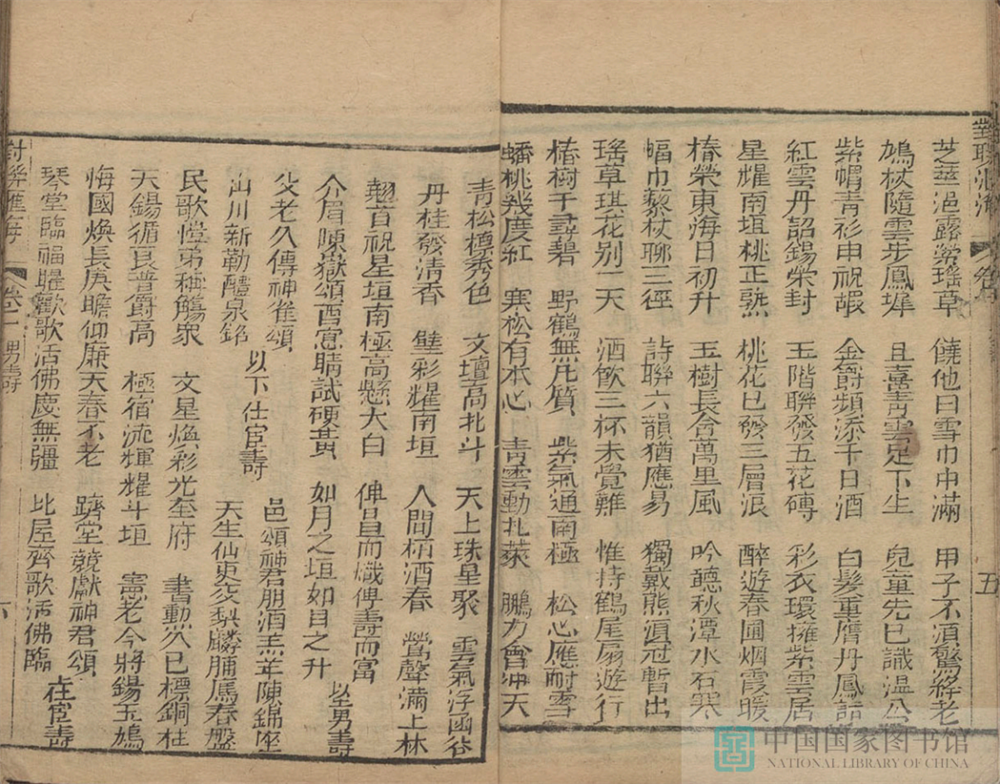 對聯匯海
卷
五
芝蓋浥露縈瑤草 饒他日雪巾中滿 甲子不須驚絳老
鳩杖隨雲步鳳墀 且喜青雲足下生 兒童先已識溫公
紫帽青衫申祝嘏 金爵頻添千日酒 白髮重膺丹鳳詔
紅雲丹詔錫榮封 玉階聯發五花磚 彩衣環擁紫雲居
星耀南垣桃正熟 桃花已發三層浪 醉遊春圃烟霞暖
椿榮東海日初升 玉樹長含萬里風 吟聽秋潭水石寒
幅巾藜杖聊三徑 詩聯六韻猶應易 獨戴熊須冠暫出
瑤草琪花別一天 酒飲三杯未覺難 惟持鶴尾扇遊行
椿樹千尋碧 野鶴無凡質 紫氣通南極 松心應耐雪
蟠桃幾度紅 寒松有本心 青雲動北萊 鵬力會冲天
青松樽秀色 文壇高北斗 天上珠星聚 雲氣浮函谷
丹桂發清香 璧彩耀南垣 人間柄酒春 鶯聲滿上林
翹首祝星垣南極高懸大白 俾昌而熾俾壽而富
介眉陳嶽頌西窓晴試硬黃 如月之垣如日之升 以上男壽
父老久傳神雀頌 以下仕宦壽 邑頌神君朋酒羔羊陳錦座
山川新勒醴泉銘 天生仙吏交梨麟脯薦春盤
民歌愷弟稱觴衆 文星煥彩光奎府 書勳久已標銅柱
天錫循良普爵高 極宿流輝耀斗垣 憲老今將錫玉鳩
悔國煥長庚瞻仰廉天春不老 躋堂競獻神君頌
琴堂臨福曜歡歌活佛慶無疆 比屋齊歌活佛臨 在官壽
對聯匯海
卷二 男壽
六
中国国家图书馆
NATIONAL LIBRARY OF CHINA